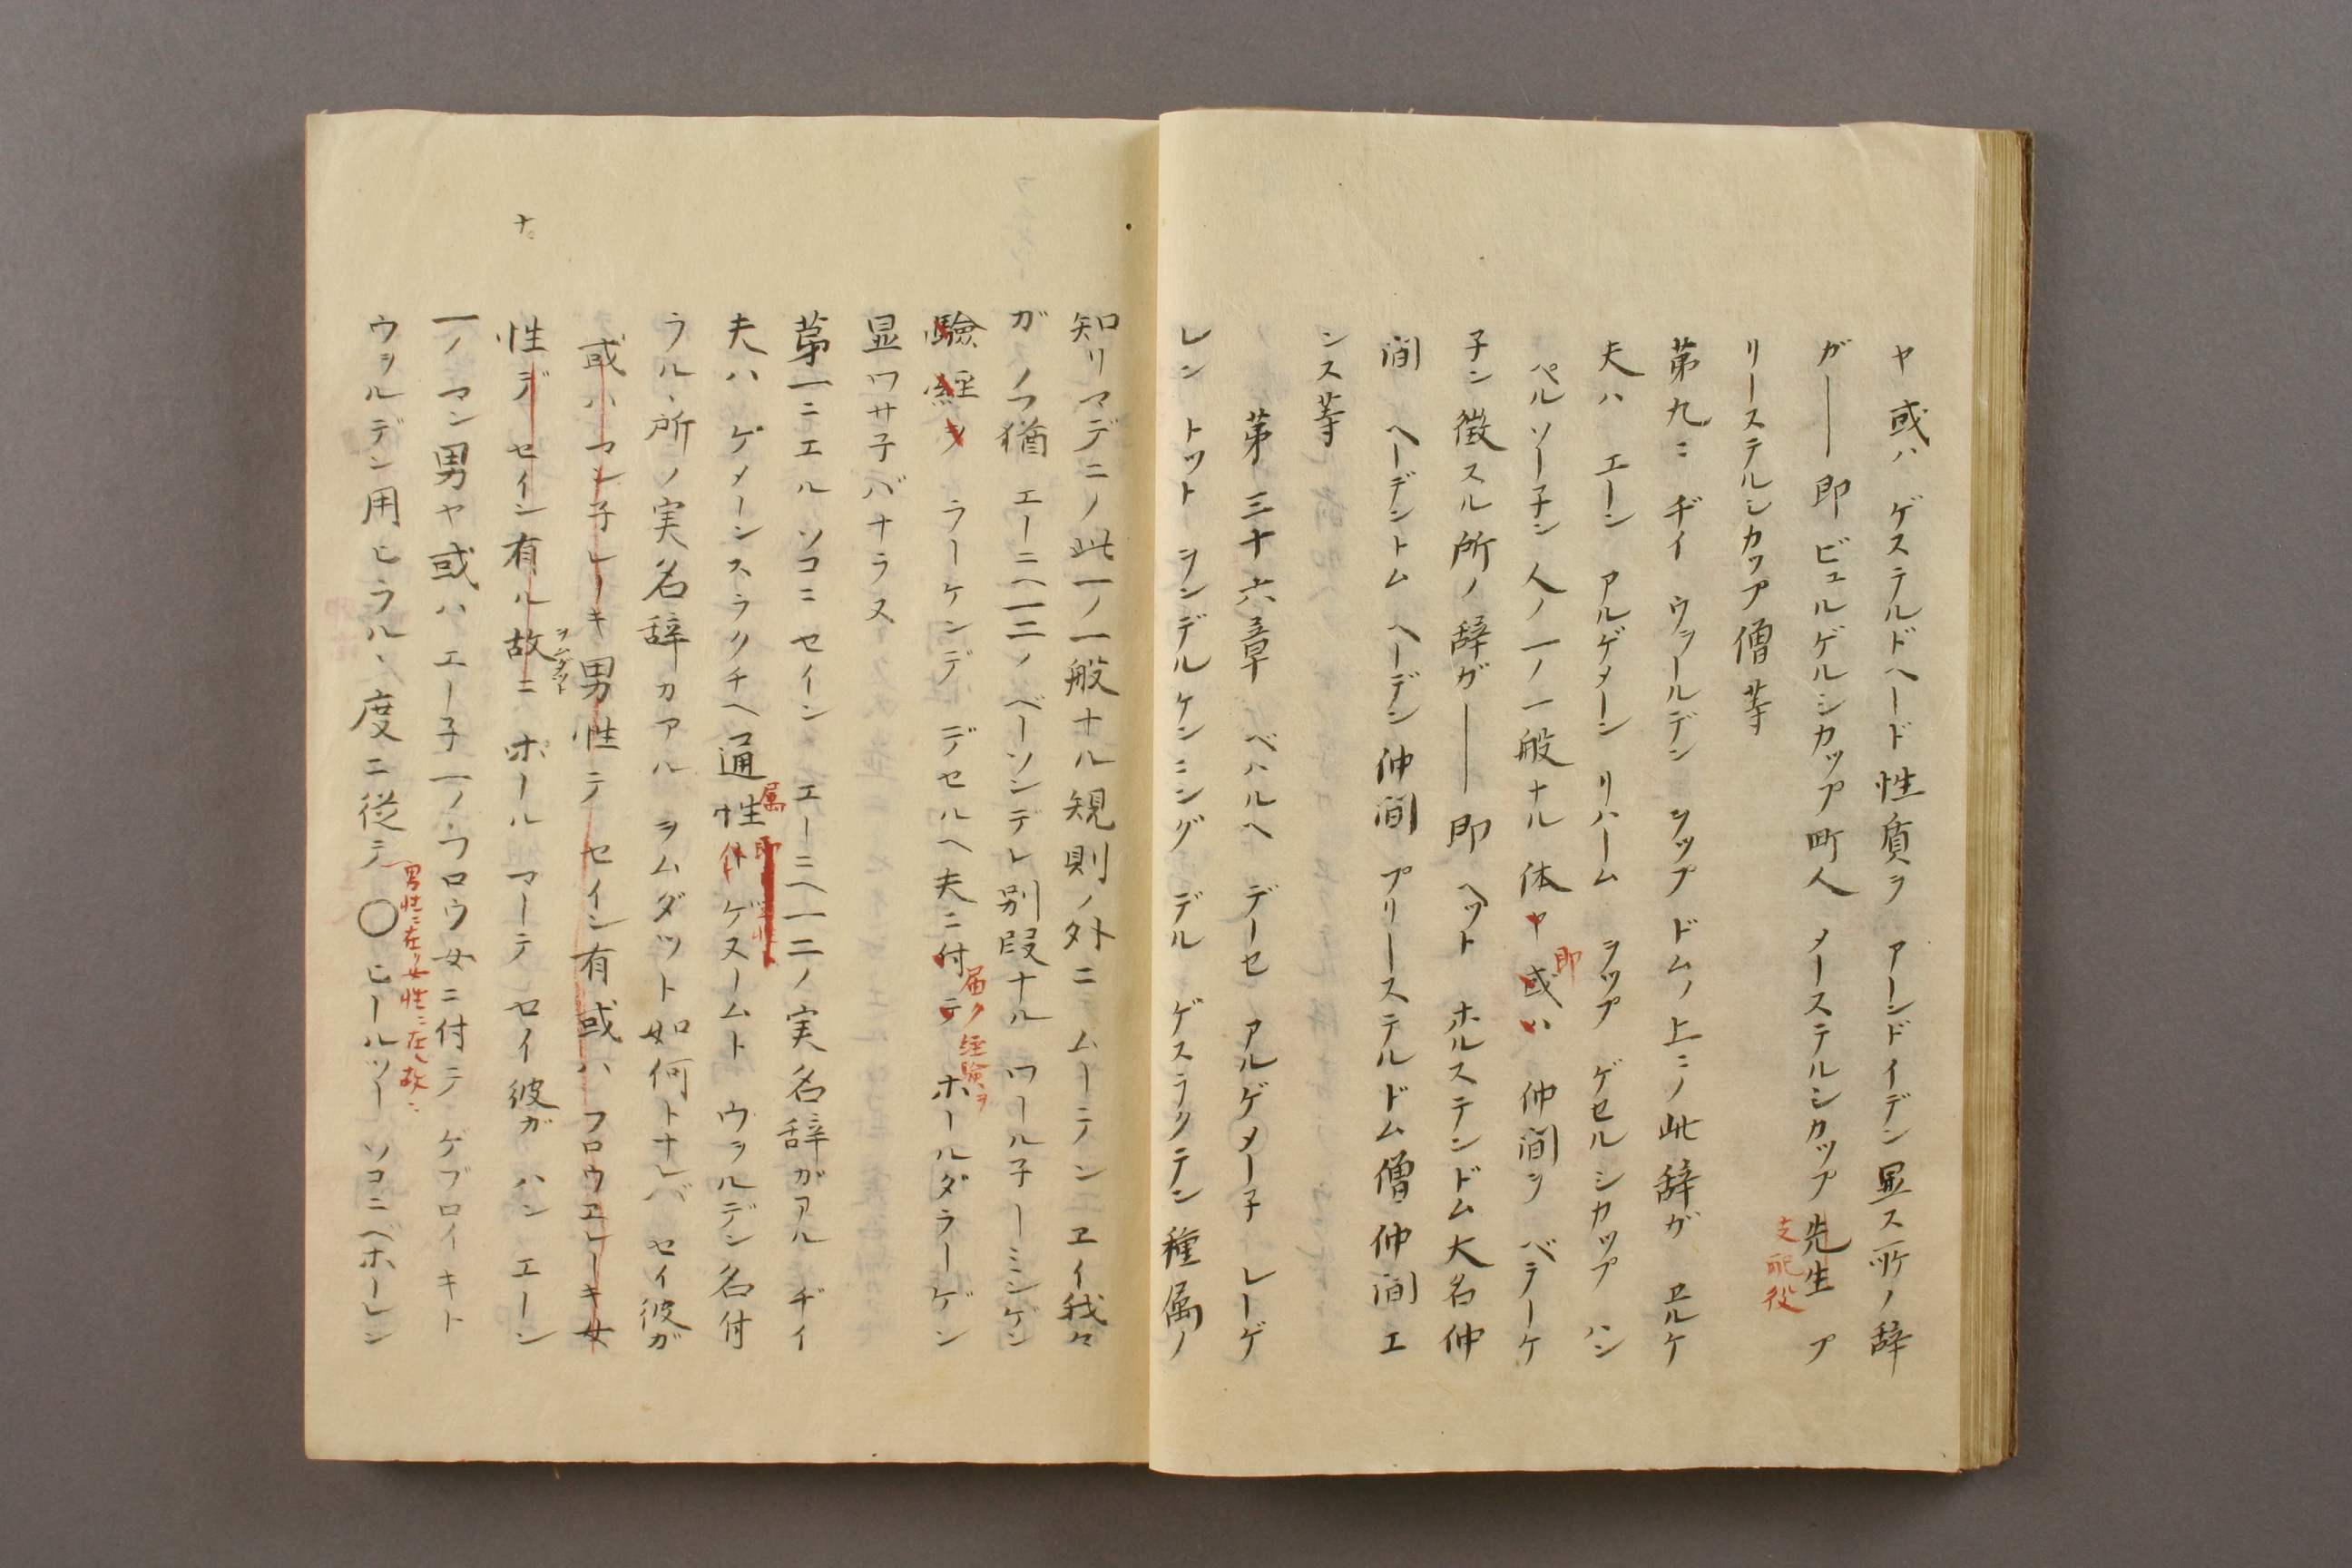 ヤ或ハ ゲステルドヘード性質ヲ アーンドイデン显ス所ノ辞
ガ── 即 ビュルゲルシカップ町人 メーステルシカップ先生 プ
支配役
リーステルシカップ僧等
第九ニ ヂイ ウヲールデン ヲップ ドムノ上ニノ此辞ガ ヱルケ
夫ハ エーン アルゲメーン リハーム ヲップ ゲセルシカップ ハン
ペルソー子ン人ノ一ノ一般ナル体ヤ或ハ 仲間ヲ ベテーケ
即
子ン徴スル所ノ辞ガ── 即 ヘット ホルステンドム大名仲
間 ヘーデントム ヘーデン仲間 プリーステルドム僧仲間エ
ンス等
第三十六章 ベハルヘ デーセ アルゲメー子 レーゲ
レン トット ヲンデルケンニング デル ゲスラクテン種属ノ
知リマデニノ此一ノ一般ナル規則ノ外ニ ムーテン ヱイ我々
ガ ノフ猶 エーニヘ一二ノ ベーソンデレ別段ナル ワール子ーミンゲン
驗経ヲ ラーケンデ デセルヘ夫ニ付テ ホールダラーゲン
届ク経験ヲ
显ワサ子バナラス
第一ニ エル ソコニ セイン エーニヘ一二ノ実名辞ガアル ヂイ
夫ハ ゲメーンスラクチヘ通性ト ゲヌームト ウヲルデン名付
属 即
ラルヽ所ノ実名辞カアル ヲムダット如何トナレバ セイ彼ガ
或ハ マン子レーキ男性テ セイン有或ハ フロウエレーキ女
性デ セイン有ル故ニ ホール マーテ セイ彼ガ ハン エーン
ヲムダット
ナ。
一ノ マン男ヤ或ハ エー子一ノ フロウ女ニ付テ ゲブロイキト
ウヲルデン用ヒラルヽ度ニ従テ ○ ヒールツー ソコニ ベホーレン
男性ニ在リ女性ニ在ル故ニ